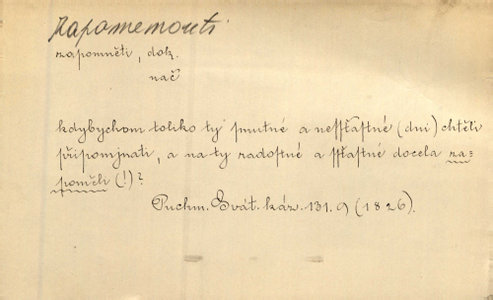 Zapomenouti
zapomněti, dok.
nač
kdybychom toliko ty smutné a nesstastné (dni) chtěli
připomjnati, a na ty radostné a sstastné docela za-
poměli (!)?
Puchm. Svát. káz. 131. 9 (1826).